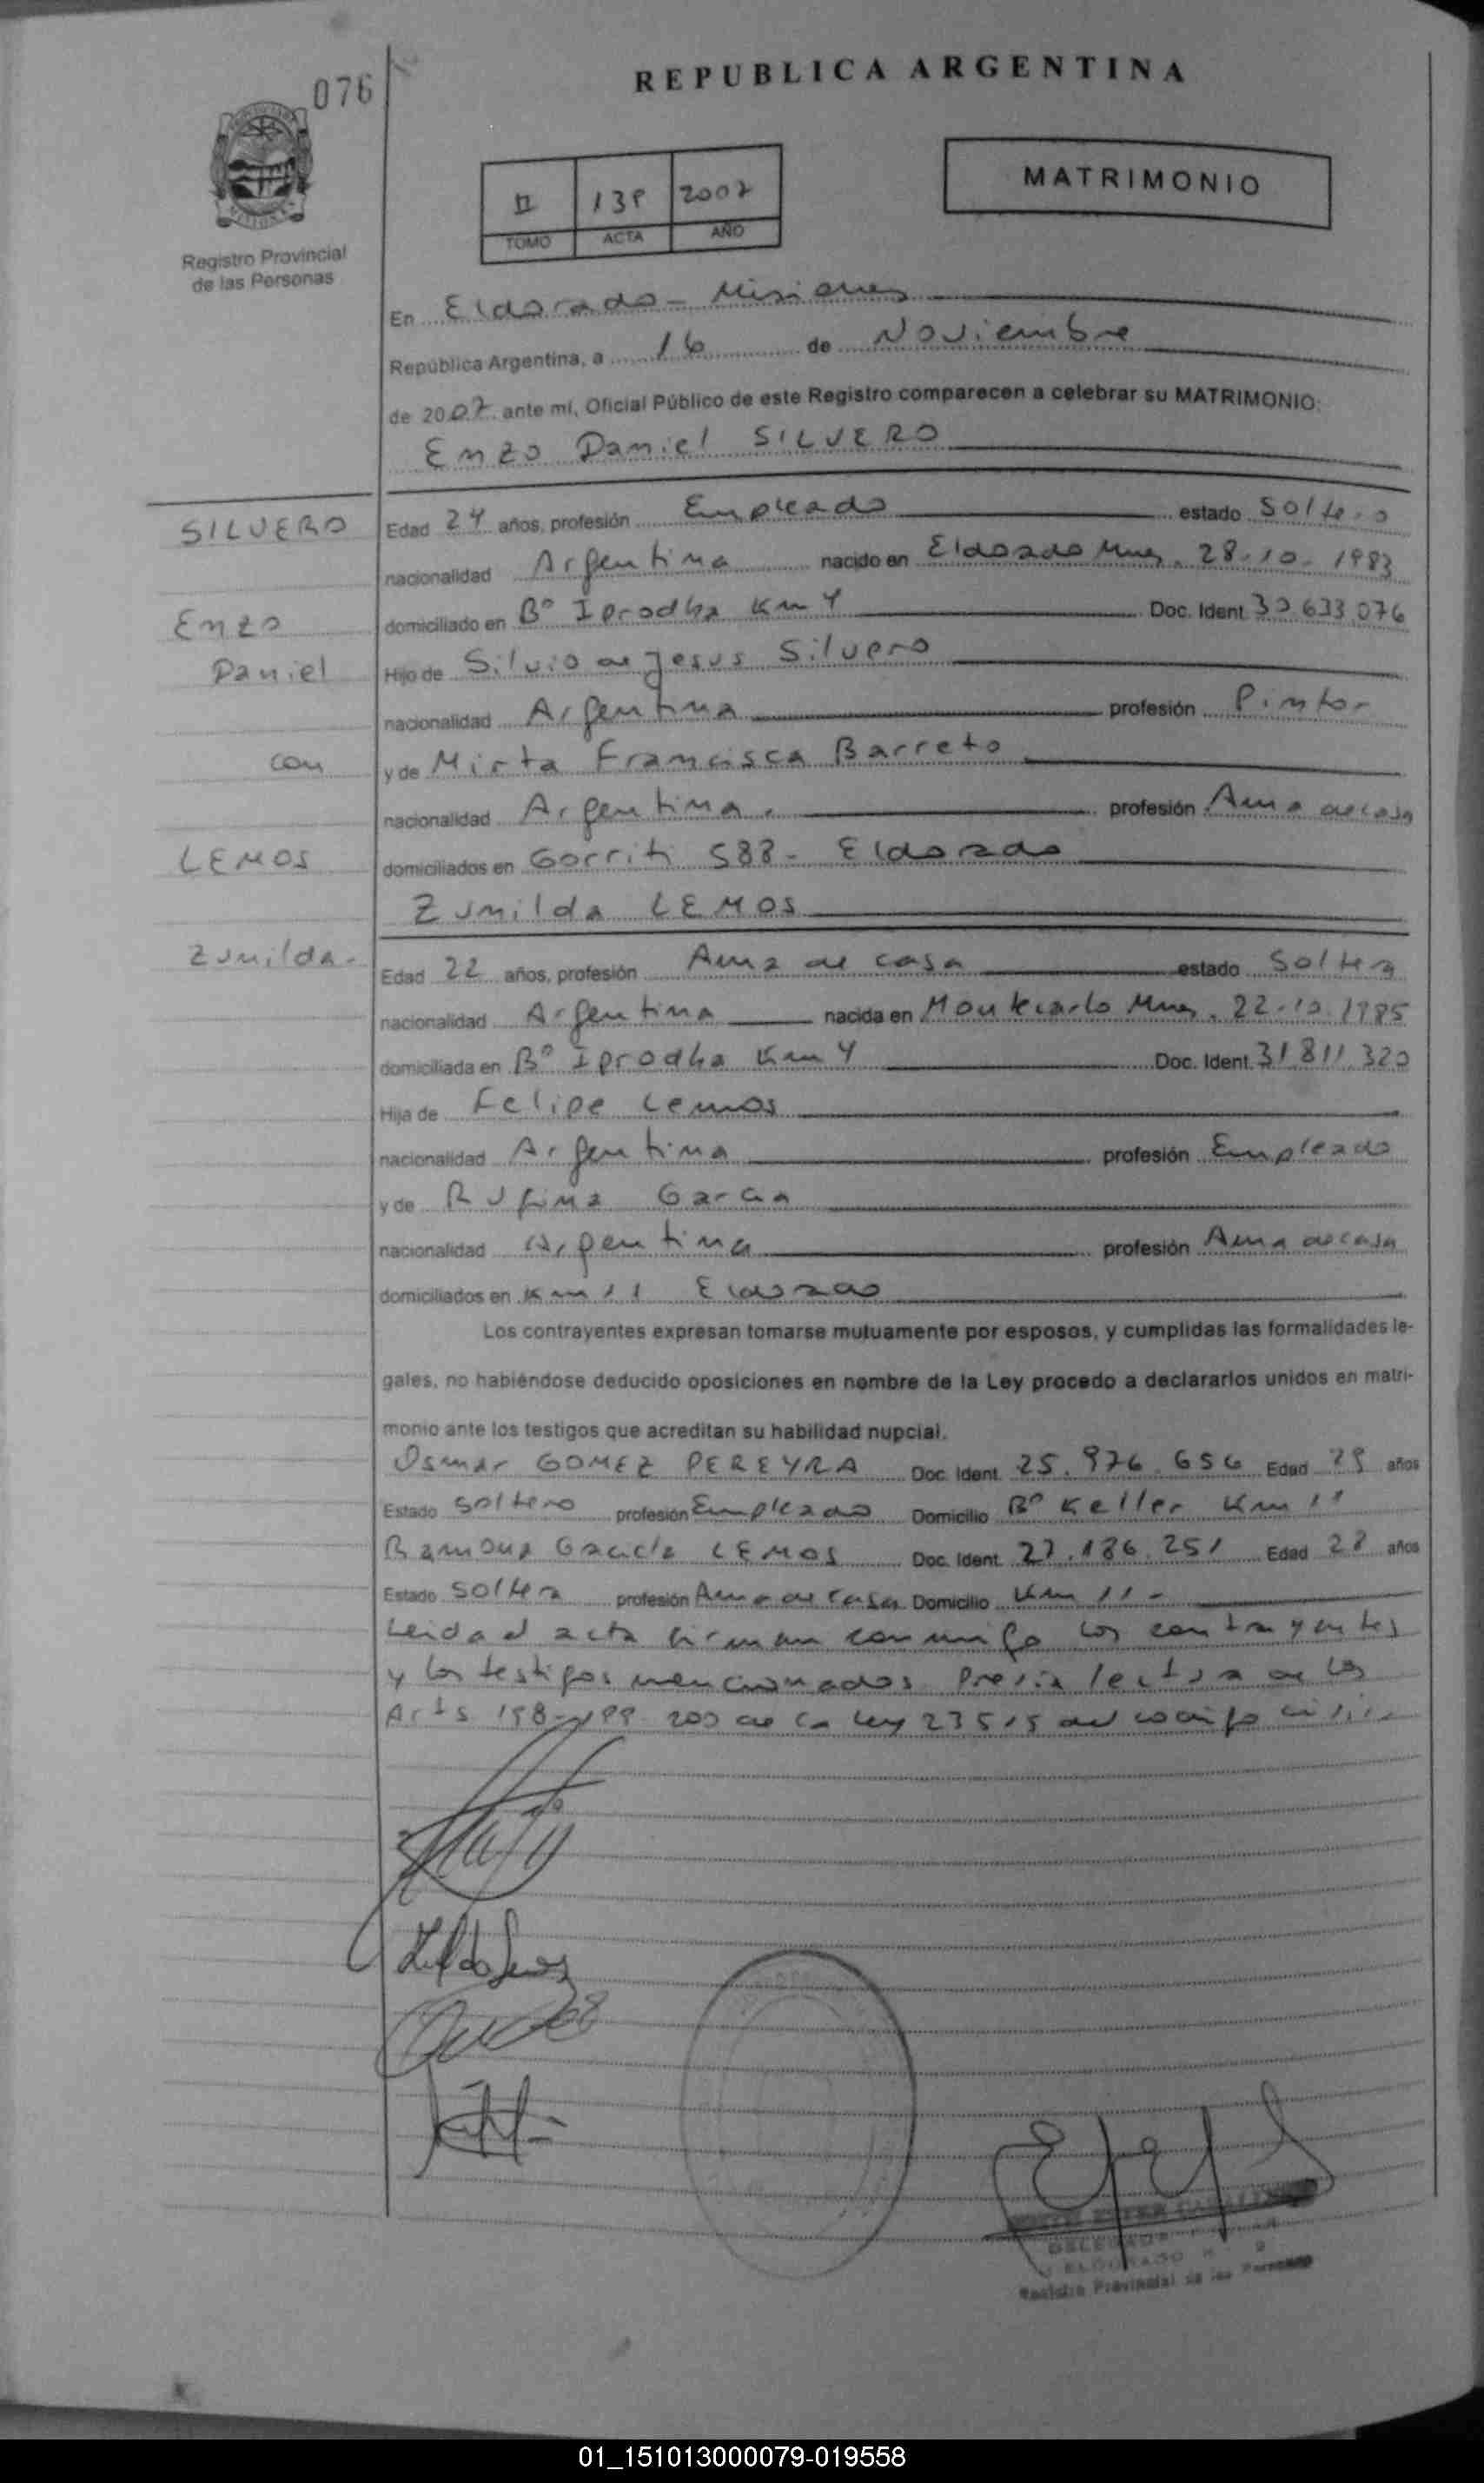 076
REPUBLICA ARGENTINA
II 2007
TOMO ACTA AÑO
MATRIMONIO
Registro Provincial
de las Personas
En Eldorado - Misiones
República Argentina, a 16 de Noviembre
de 2007 ante mí, Oficial Público de este Registro comparecen a celebrar su MATRIMONIO:
Enzo Daniel SILVERO
SILVERO
Edad 24 años, profesión Empleado estado Soltero
nacionalidad Argentina nacido en Eldorado Mnes. 28-10-1983
Enzo
domiciliado en Bº Iprodha Km 4 Doc. Ident. 30.633.076
Daniel
Hijo de Silvio de Jesus Silvero
nacionalidad Argentina profesión Pintor
con
y de Mirta Francisca Barreto
nacionalidad Argentina. profesión Ama de casa
LEMOS
domiciliados en Gorriti 588 - Eldorado
Zunilda LEMOS
Zunilda -
Edad 22 años, profesión Ama de casa estado Soltera
nacionalidad Argentina nacida en Montecarlo Mnes. 22-10-1985
domiciliada en Bº Iprodha Km 4 Doc. Ident. 31.811.320
Hija de Felipe Lemos
nacionalidad Argentina profesión Empleado
y de Rufina Garcia
nacionalidad Argentina profesión Ama de casa
domiciliados en Km 11 Eldorado
Los contrayentes expresan tomarse mutuamente por esposos, y cumplidas las formalidades le-
gales, no habiéndose deducido oposiciones en nombre de la Ley procedo a declararlos unidos en matri-
monio ante los testigos que acreditan su habilidad nupcial.
Osmar GOMEZ PEREYRA Doc. Ident. 25.976.656 Edad 29 años
Estado Soltero profesión Empleado Domicilio Bº Keller Km 11
Ramona Graciela LEMOS Doc. Ident. 27.186.251 Edad 28 años
Estado Soltera profesión Ama de casa Domicilio Km 11 -
Leida el acta firman conmigo los contrayentes
y los testigos mencionados. Previa lectura de los
Arts 198-199-200 de la Ley 23515 del codigo civil.
Registro Provincial de las Personas
01_151013000079-019558